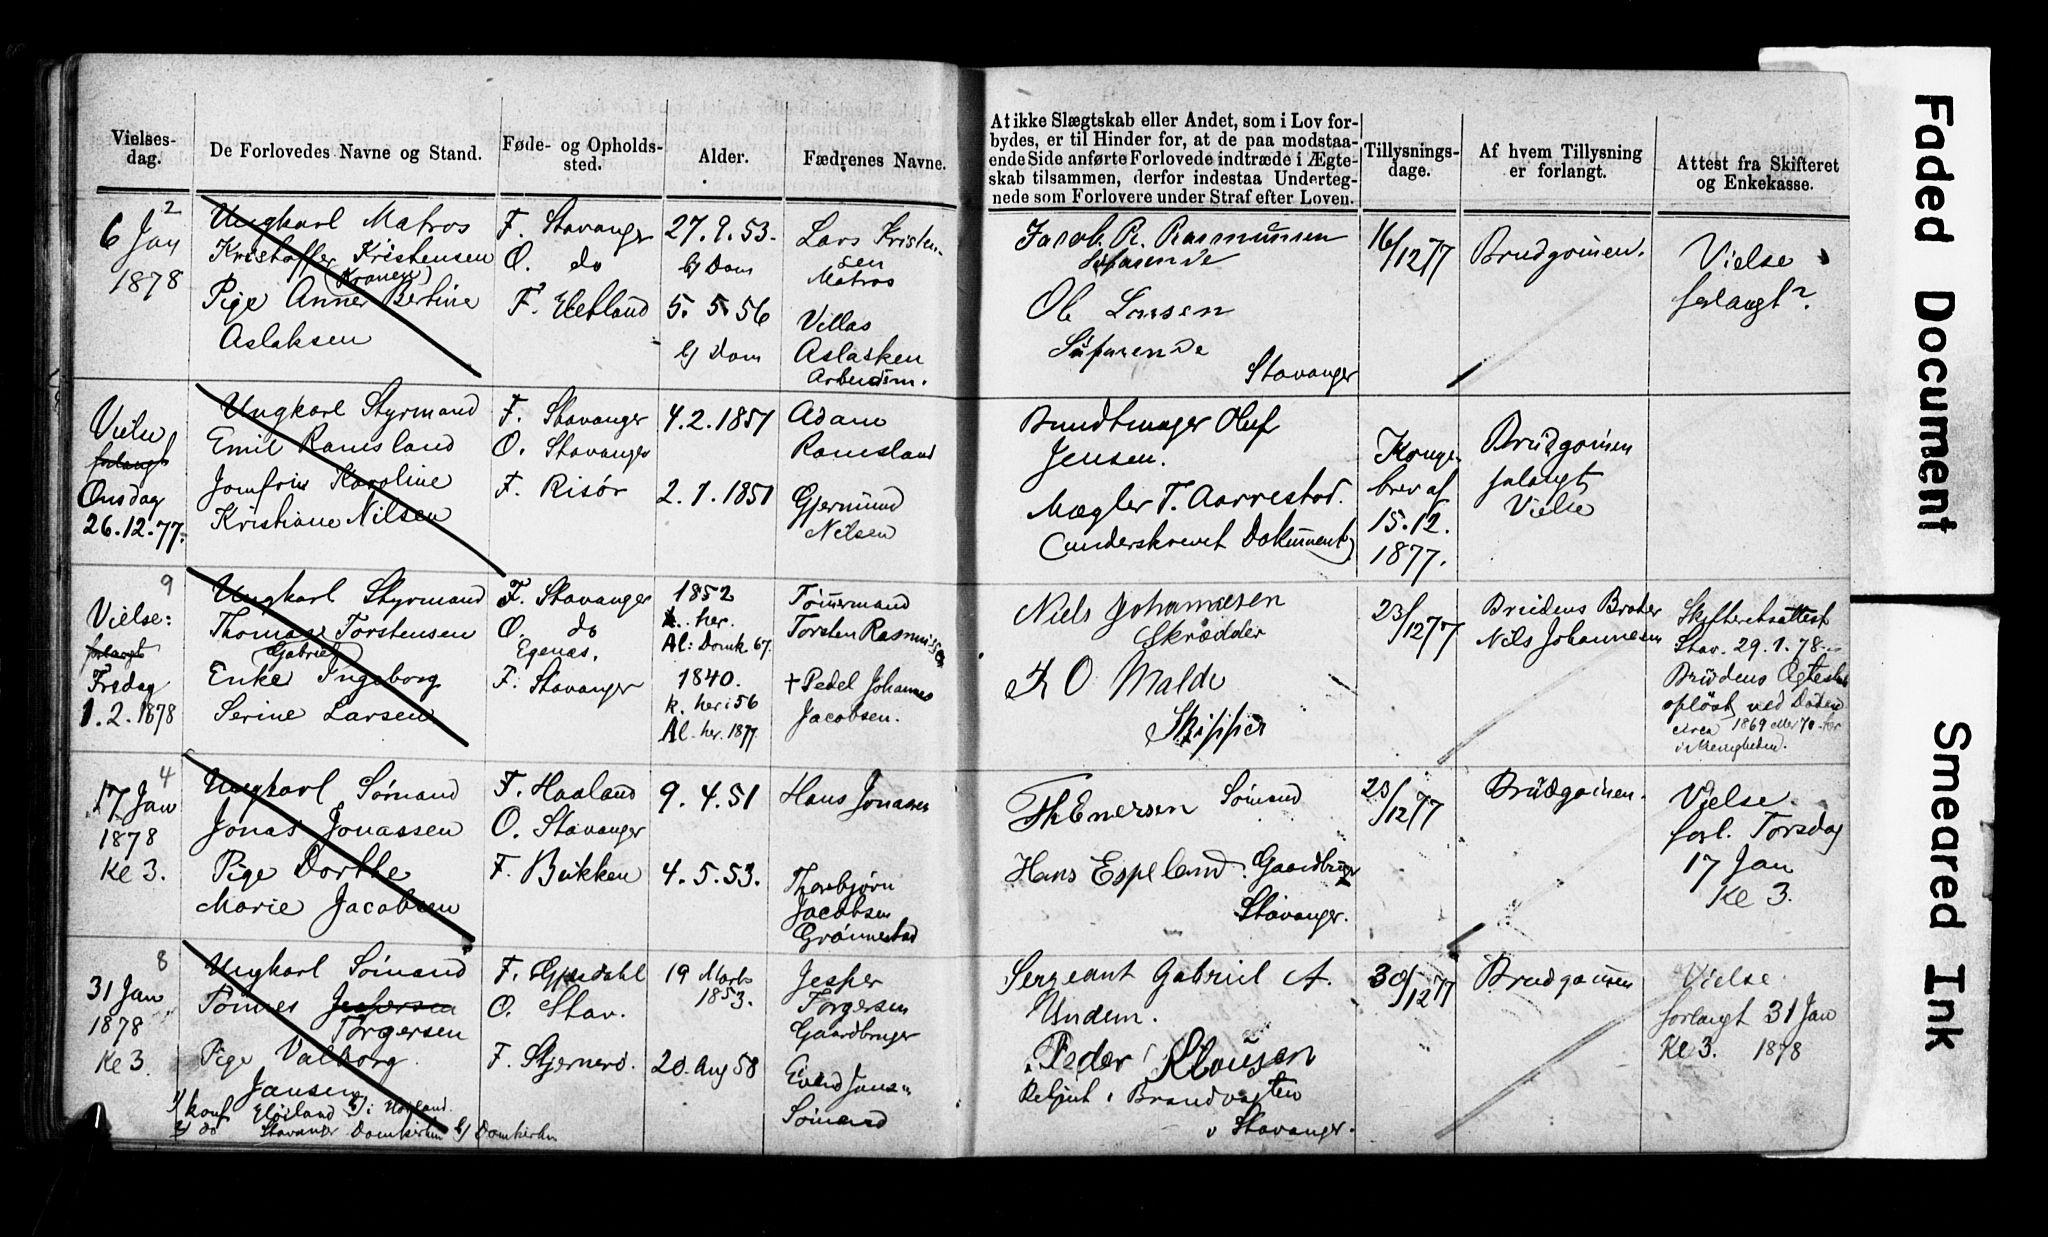 Vielses-
dag.
De Forlovedes Navne og Stand.
Føde- og Opholds-
sted.
Alder.
Fædrenes Navne.
At ikke Slægtskab eller Andet, som i Lov for-
bydes, er til Hinder for, at de paa modstaa-
ende Side anførte Forlovede indtræde i Ægte-
skab tilsammen, derfor indestaa Underteg-
nede som Forlovere under Straf efter Loven.
Tillysnings-
dage.
Af hvem Tillysning
er forlangt.
Attest fra Skifteret
og Enkekasse.
2
6 Jan
1878
Ungkarl Matros
Kristoffer Kristensen
(Kronen)
Pige Anne Bertine
Aslaksen
F. Stavanger
O. do
F. Hetland
27. 9. 53.
b/ Dom
5. 5. 56
b/ Dom
Lars Kristen-
sen
Matros
Villas
Aslaksen
Arbeidsm.
Jacob R. Rasmussen
Søfarende
Ole Larsen
Søfarende
Stavanger
16/12 77
Brudgommen.
Vielse
forlangt?
Vielse
forlangt
Onsdag
26.12.77.
Ungkarl Styrmand
Emil Ramsland
Jomfru Karoline
Kristiane Nilsen
F. Stavanger
O. Stavanger
F. Risör
4.2.1851
2.1.1851
Adam
Ramsland
Gjermund
Nilsen
Bundtmager Oluf
Jensen.
Mægler T. Aarrestad.
(underskrevet Dokument)
Konge-
brev af
15.12.
1877.
Brudgommen
forlangt
Vielse
9
Vielse:
forlangt
Fredag
1.2.1878
Ungkarl Styrmand
Thomas Torstensen
Gabriel
Enke Ingeborg
Serine Larsen
F. Stavanger
O. do
Egenæs.
F. Stavanger
1852
k. her.
Al: Domk 67.
1840.
k. her i 56
Al. her. 1877
Tømmermand
Torsten Rasmussen
+ Pedel Johannes
Jacobsen.
Niels Johannesen
Skrædder
O Malde
Skipper
23/12 77
Brudens Broder
Nils Johannesen
Skifteretsattest
Stav. 29.1.78
Brudens Egteskab
opløst ved Døden
circa 1869 eller 70 her
i Menigheden.
4
17 Jan
1878
Kl 3.
Ungkarl Sømand
Jonas Jonassen
Pige Dorthe
Marie Jacobsen
F. Haaland
O. Stavanger
F. Bukken
9. 4. 51
4. 5. 53.
Hans Jonassen
Thorbjørn
Jacobsen
Grønnestad
Th Enersen Sømand
Hans Espeland. Gaardbruger
Stavanger.
23/12 77
Brudgommen.
Vielse.
forl. Torsdag
17 Jan
Kl 3.
8
31 Jan
1878
Kl 3.
Ungkarl Sømand
Tönnes Jespersen
Torgersen
Pige Valborg
Jansen
1/ konf Høiland b/ i Høiland.
2/ do Stavanger Domkirken b/ Domkirken
F. Gjesdahl
O. Stav.
F. Stjernerö.
19 Marts
1853.
20. Aug 58
Jesper
Torgersen
Gaardbruger
Eivind Jansen
Sømand
Sergeant Gabriel A.
Undem.
Peder Clausen
Betjent i Brandvagten
i Stavanger.
30/12 77
Brudgommen
Vielse
forlangt 31 Jan
Kl 3. 1878
Faded Document
Smeared Ink